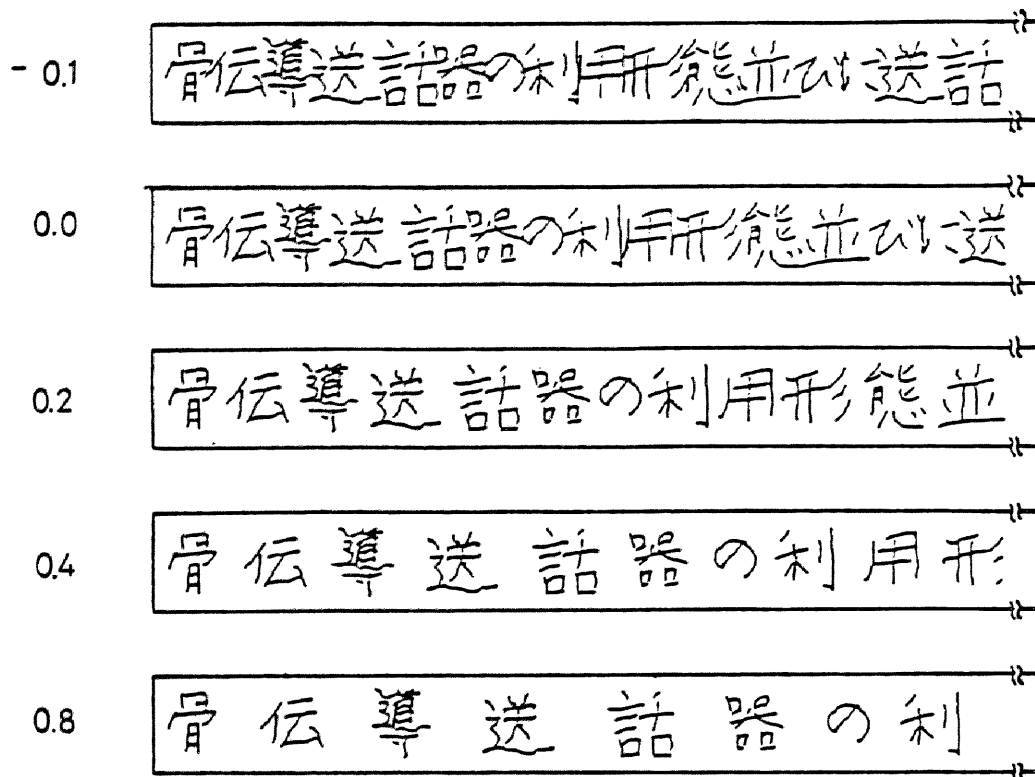 - 0.1 骨伝導送話器の利用形態並びに送話
0.0 骨伝導送話器の利用形態並びに送
0.2 骨伝導送話器の利用形態並
0.4 骨伝導送話器の利用形
0.8 骨伝導送話器の利